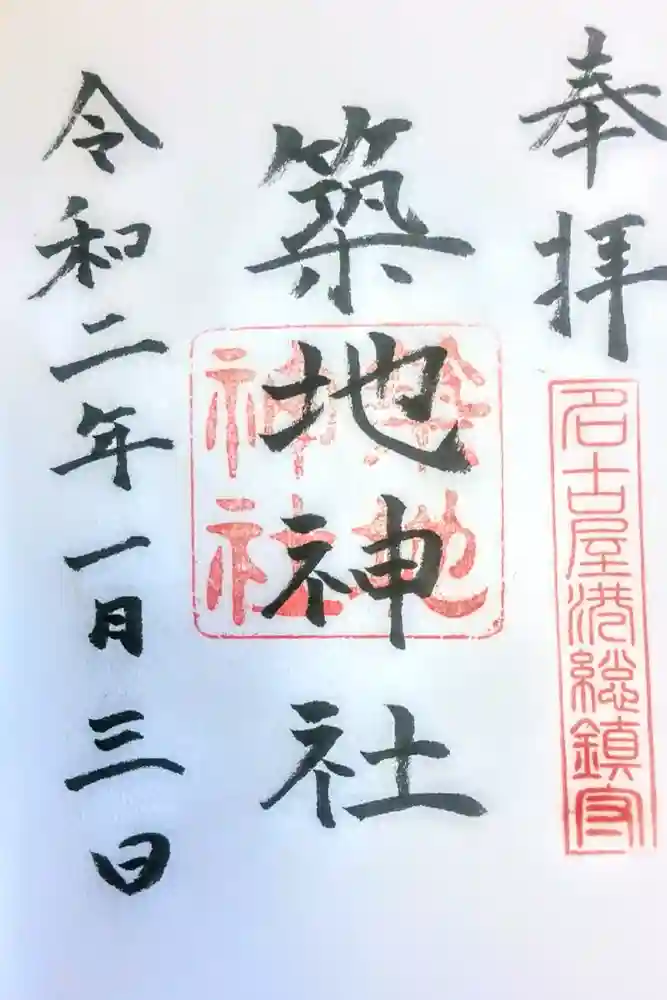 奉拝
名古屋港総鎮守
築地神社
築地神社
令和二年一月三日